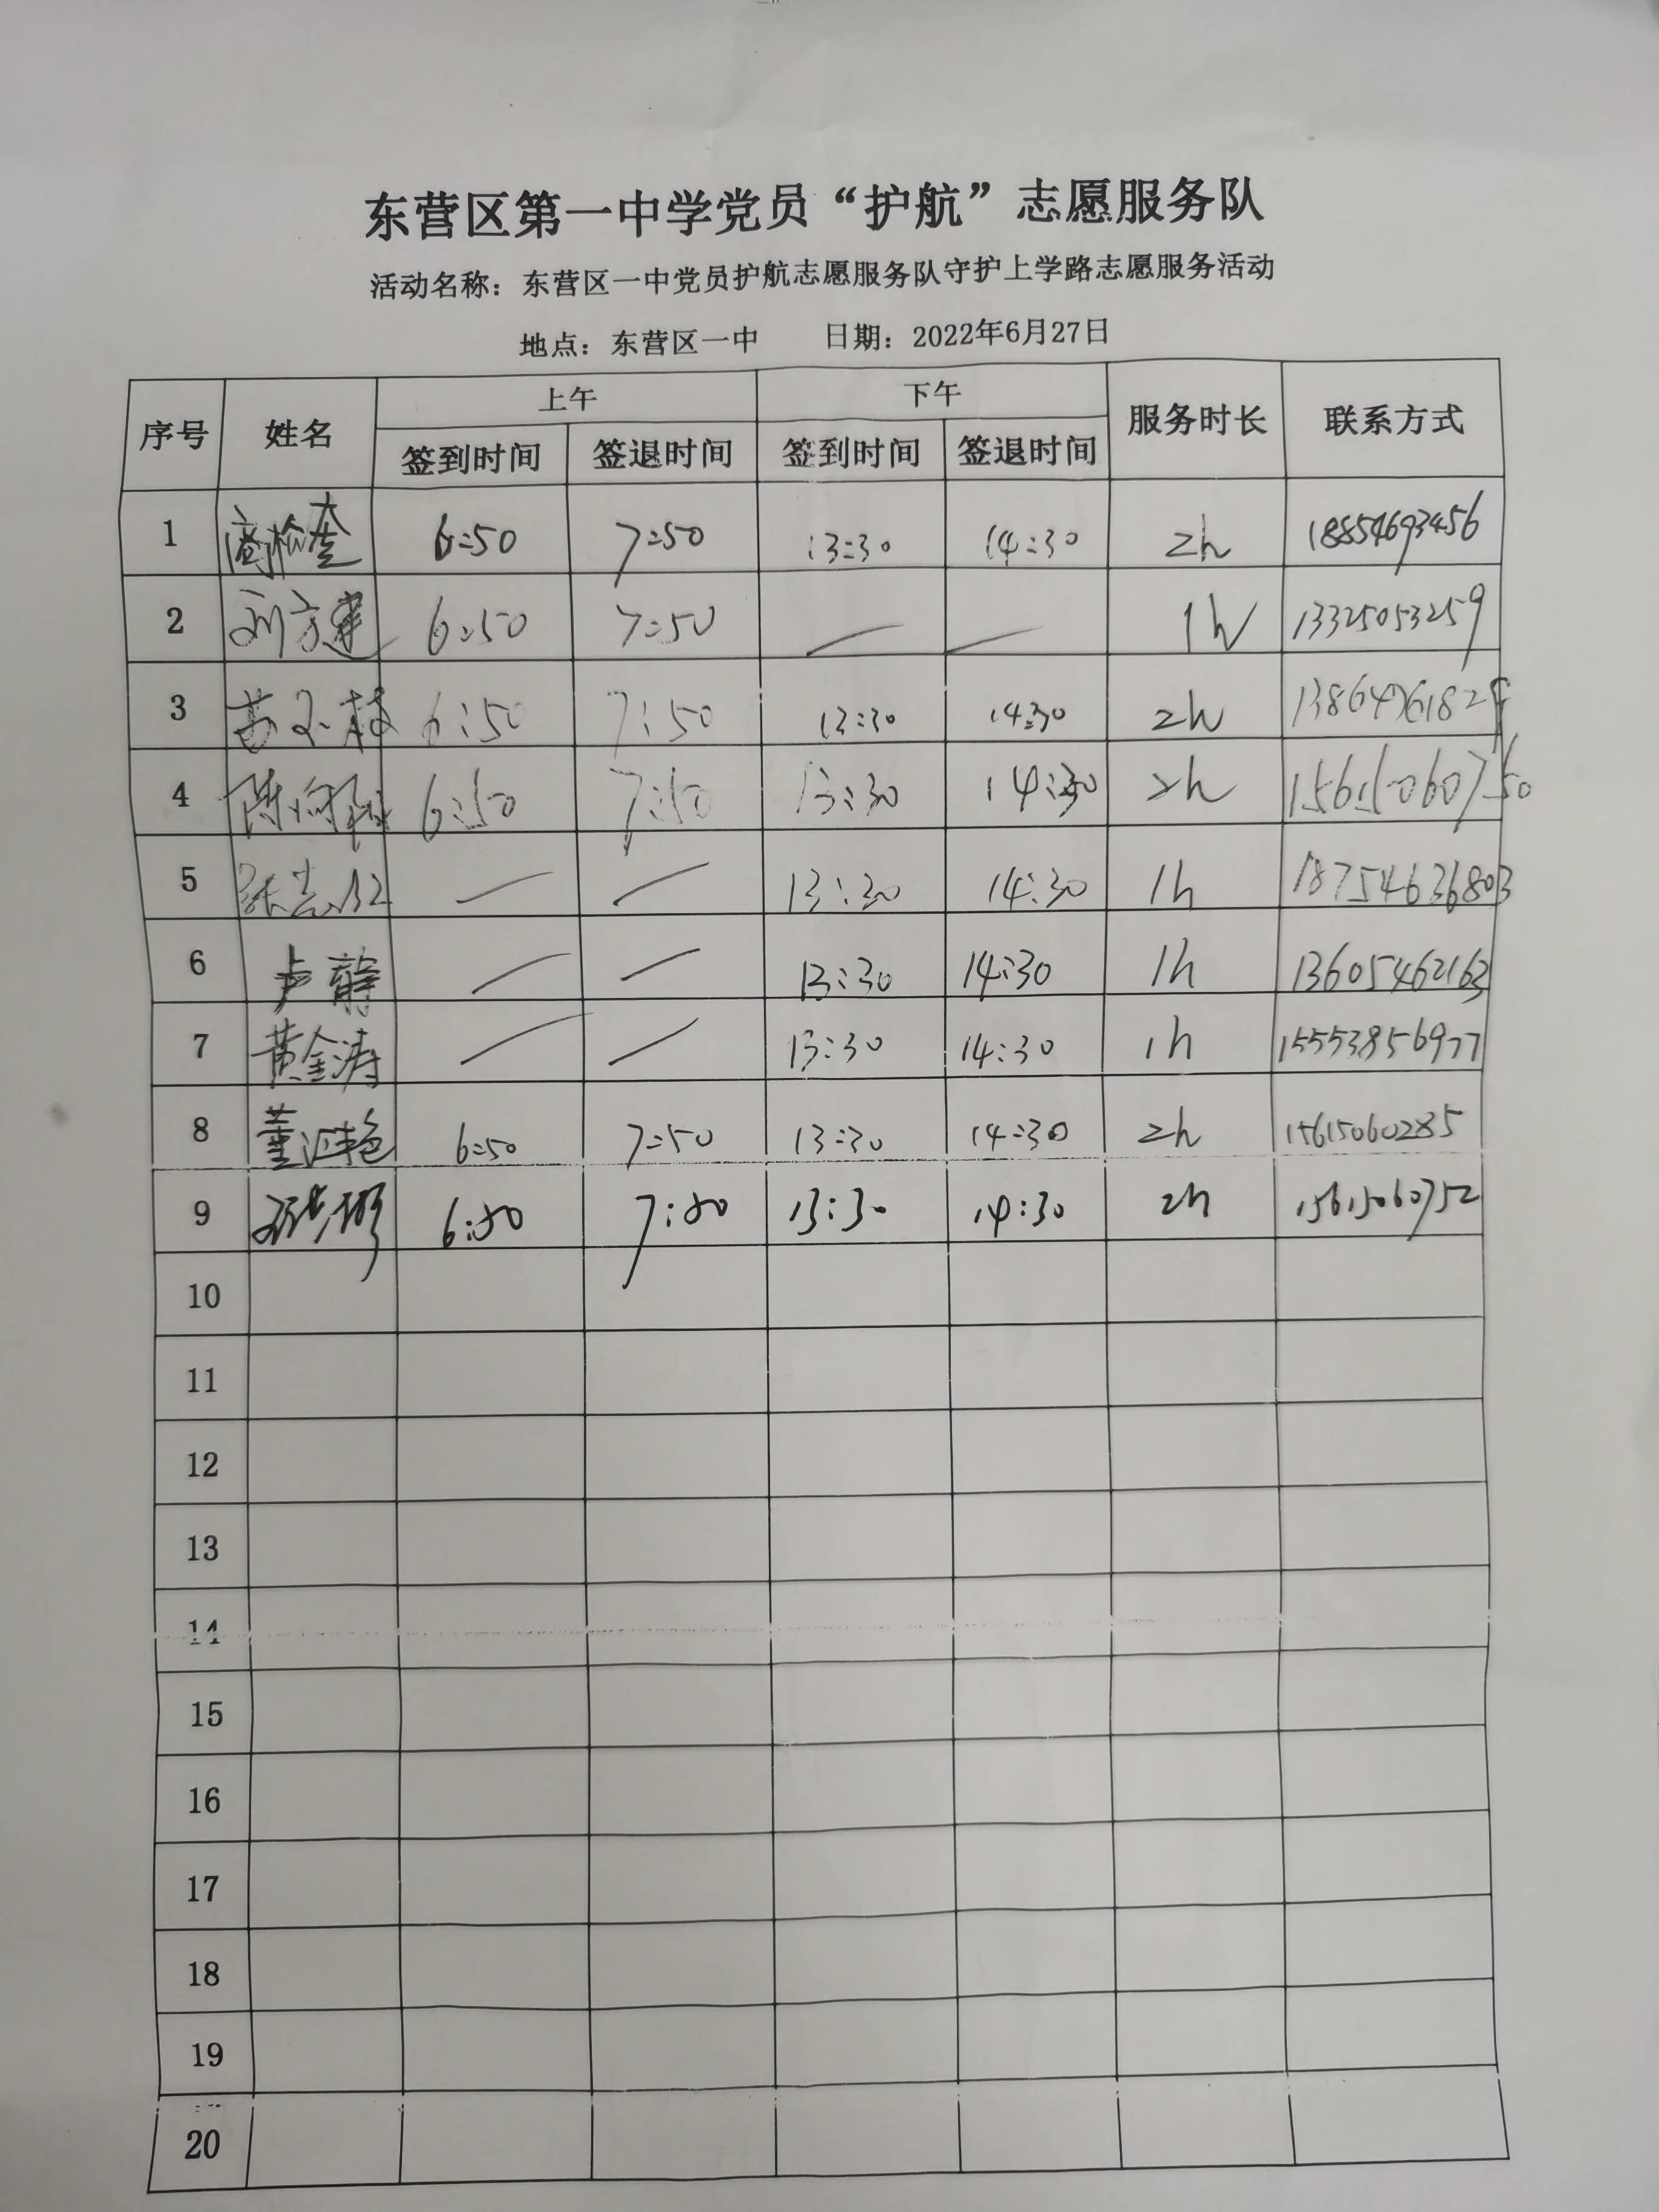 东营区第一中学党员“护航”志愿服务队
活动名称：东营区一中党员护航志愿服务队守护上学路志愿服务活动
地点：东营区一中 日期：2022年6月27日
序号 姓名 上午 下午 服务时长 联系方式
签到时间 签退时间 签到时间 签退时间
1 6:50 7:50 13:30 14:30 2h 18854693456
2 刘方建 6:50 7:50 — — 1h 13325053259
3 6:50 7:50 13:30 14:30 2h
4 6:50 7:50 13:30 14:30 2h 15615060750
5 — — 13:30 14:30 1h 18754636803
6 卢静 — — 13:30 14:30 1h 13605462163
7 黄金涛 — — 13:30 14:30 1h 15553856977
8 6:50 7:50 13:30 14:30 2h 15615060285
9 6:50 7:50 13:30 14:30 2h 15615060752
10
11
12
13
14
15
16
17
18
19
20